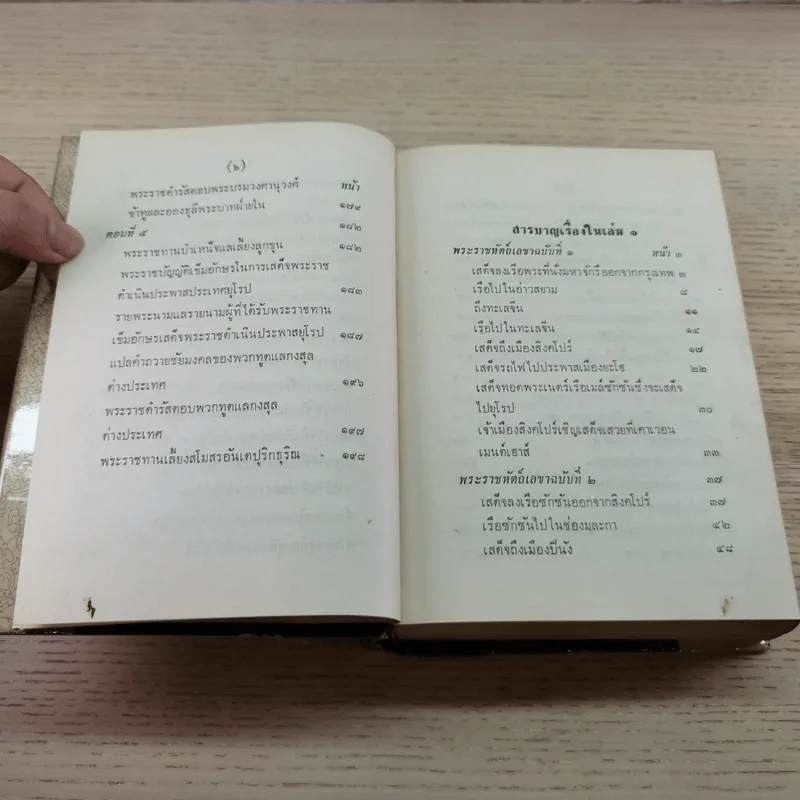 (๖)
พระราชดำรัสตอบพระบรมวงศานุวงศ์ หน้า
ข้าทูลละอองธุลีพระบาทฝ่ายใน ๑๗๙
ตอนที่ ๕ ๑๘๒
พระราชทานบำเหน็จแลเลี้ยงลูกขุน ๑๘๒
พระราชบัญญัติเข็มอักษรในการเสด็จพระราช
ดำเนินประพาสประเทศยุโรป ๑๘๓
รายพระนามแลรายนามผู้ที่ได้รับพระราชทาน
เข็มอักษรเสด็จพระราชดำเนินประพาสยุโรป ๑๘๗
แปลคำถวายชัยมงคลของพวกทูตแลกงสุล
ต่างประเทศ ๑๙๖
พระราชดำรัสตอบพวกทูตแลกงสุล
ต่างประเทศ ๑๙๗
พระราชทานเลี้ยงสโมสรอันเตปุริกธุริณ ๑๙๘
สารบาญเรื่องในเล่ม ๑
พระราชหัตถ์เลขาฉบับที่ ๑ หน้า ๓
เสด็จลงเรือพระที่นั่งมหาจักรีออกจากกรุงเทพ ๓
เรือไปในอ่าวสยาม ๘
ถึงทะเลจีน ๑๑
เรือไปในทะเลจีน ๑๕
เสด็จถึงเมืองสิงคโปร์ ๑๗
เสด็จรถไฟไปประพาสเมืองยะโฮ ๒๒
เสด็จทอดพระเนตร์เรือเมล์ซักซันซึ่งจะเสด็จ
ไปยุโรป ๓๐
เจ้าเมืองสิงคโปร์เชิญเสด็จเสวยที่เคาเวอน
เมนต์เฮาส์ ๓๓
พระราชหัตถ์เลขาฉบับที่ ๒ ๓๗
เสด็จลงเรือซักซันออกจากสิงคโปร์ ๓๗
เรือซักซันไปในช่องมละกา ๔๒
เสด็จถึงเมืองปีนัง ๔๘